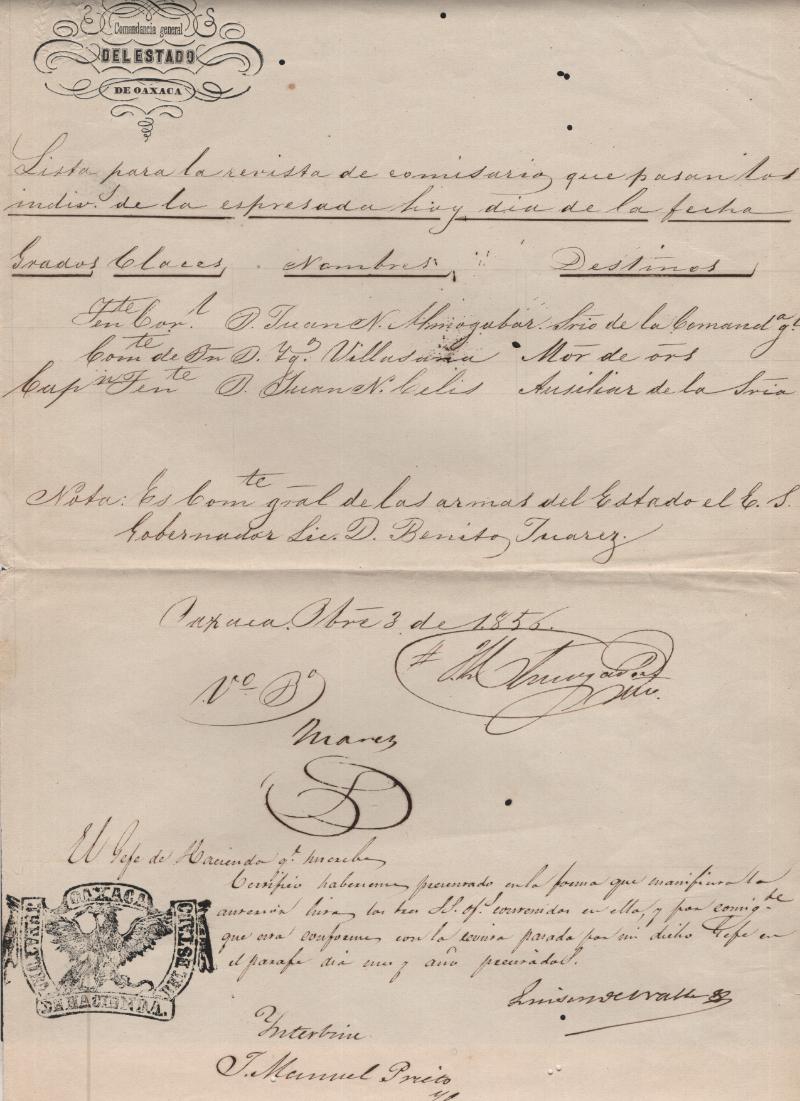 Comandancia general
DEL ESTADO
DE OAXACA
Lista para la revista de comisario que pasan los
indivs. de la espresada hoy dia de la fecha
Grados Claces Nombres Destinos
Tente Corl. D. Juan N. Almogabar. Srio de la Comanda gl
Comte de Bn D. Ygo Villasaña Mor de ors
Capn Tente D. Juan N. Celis Ausiliar de la Sria
Nota: Es Comte gral de las armas del Estado el E. S.
Gobernador Lic. D. Benito Juarez.
Oaxaca. Obre 3 de 1856.
Vo Bo
Juarez
El Gefe de Hacienda qe suscribe
Certifico haberseme presentado en la forma que manifiesta la
anterior lista los tres SS. ofs. contenidos en ella, y por
que esta conforme con la revista pasada por mi dicho Gefe en
el paraje dia mes y año precitados.
OAXACA
DEL ESTADO
DE HACIENDA.
Interbine
J. Manuel Prieto